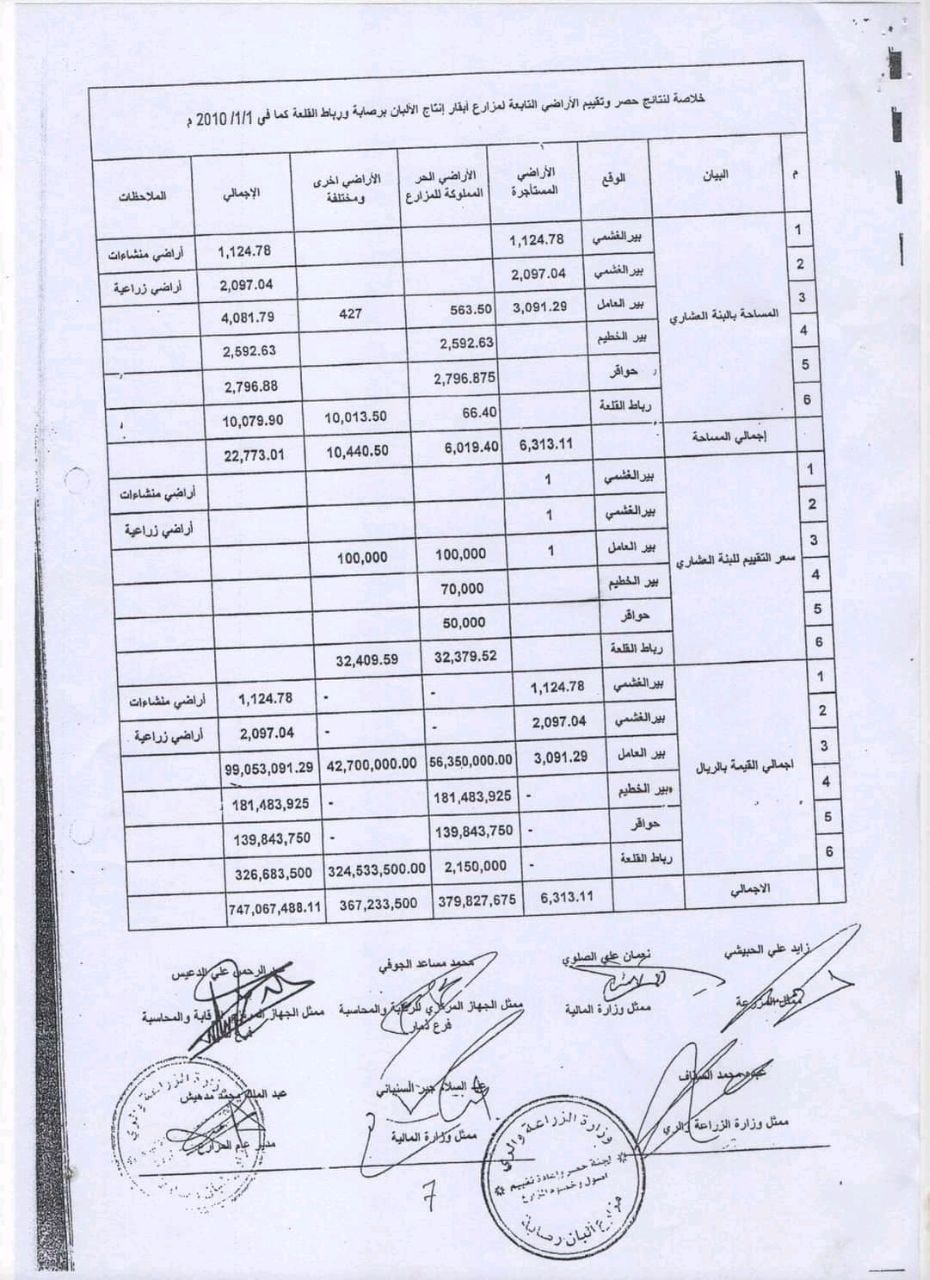 خلاصة لنتائج حصر وتقييم الأراضي التابعة لمزارع أبقار إنتاج الألبان برصابة ورباط القلعة كما في 1/1/ 2010 م
م البيان الوقع الأراضي المستأجرة الأراضي الحر المملوكة للمزارع الأراضي اخرى ومختلفة الإجمالي الملاحظات
1 بير الغشمي 1,124.78 1,124.78 أراضي منشاءات
2 بير الغشمي 2,097.04 2,097.04 أراضي زراعية
المساحة بالبنة العشاري
3 بير العامل 3,091.29 563.50 427 4,081.79
4 بير الخطيم 2,592.63 2,592.63
5 حواقر 2,796.875 2,796.88
6 رباط القلعة 66.40 10,013.50 10,079.90
إجمالي المساحة 6,313.11 6,019.40 10,440.50 22,773.01
1 بير الغشمي 1 أراضي منشاءات
2 بير الغشمي 1 أراضي زراعية
سعر التقييم للبنة العشاري
3 بير العامل 1 100,000 100,000
4 بير الخطيم 70,000
5 حواقر 50,000
6 رباط القلعة 32,379.52 32,409.59
1 بير الغشمي 1,124.78 - - 1,124.78 أراضي منشاءات
2 بير الغشمي 2,097.04 - - 2,097.04 أراضي زراعية
اجمالي القيمة بالريال
3 بير العامل 3,091.29 56,350,000.00 42,700,000.00 99,053,091.29
4 بير الخطيم - 181,483,925 - 181,483,925
5 حواقر - 139,843,750 - 139,843,750
6 رباط القلعة - 2,150,000 324,533,500.00 326,683,500
الاجمالي 6,313.11 379,827,675 367,233,500 747,067,488.11
زايد علي الحبيشي نعمان علي الصلوي محمد مساعد الجوفي الرحمن علي الدعيس
ممثل المزرعة ممثل وزارة المالية ممثل الجهاز المركزي للرقابة والمحاسبة ممثل الجهاز المركزي قابة والمحاسبة
فرع ذمار
عبده محمد عبد السلام جبر السنباني عبد الملك محمد مدهيش
ممثل وزارة الزراعة والري ممثل وزارة المالية مدير عام المزارع
وزارة الزراعة والري
لجنة حصر واعادة تقييم
اصول وخصوم المزارع
مزارع ألبان رصابة
وزارة الزراعة والري
7